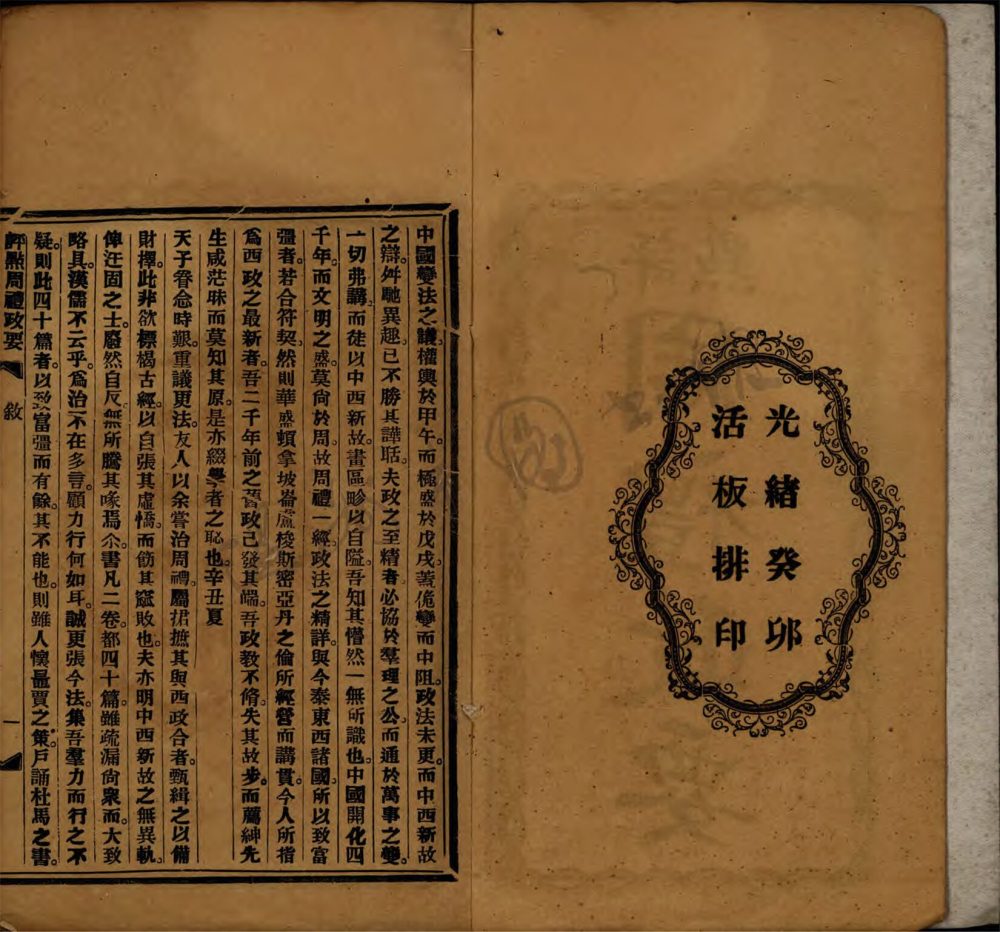 光緒癸卯
活板排印
中國變法之議。權輿於甲午。而極盛於戊戌。蓋佹變而中阻。政法未更。而中西新故
之辯。舛馳異趣。已不勝其譁聒。夫政之至精者。必協於羣理之公。而通於萬事之變。
一切弗講。而徒以中西新故。畫區畛以自隘。吾知其懵然一無所識也。中國開化四
千年。而文明之盛。莫尙於周。故周禮一經。政法之精詳。與今泰東西諸國。所以致富
彊者。若合符契。然則華盛頓拿坡崙盧梭斯密亞丹之倫。所經營而講貫。今人所指
爲西政之最新者。吾二千年前之舊政。已發其端。吾政教不脩。失其故步。而薦紳先
生咸茫昧而莫知其原。是亦綴學者之恥也。辛丑夏
天子眷念時艱。重議更法。友人以余嘗治周禮。屬捃摭其與西政合者。甄緝之以備
財擇。此非欲標楬古經。以自張其虛憍。而飾其窳敗也。夫亦明中西新故之無異軌。
俾迂固之士。廢然自反。無所騰其喙焉尒。書凡二卷。都四十篇。雖疏漏尙衆。而大致
略具。漢儒不云乎。爲治不在多言。顧力行何如耳。誠更張今法。集吾羣力而行之不
疑。則此四十篇者。以致富彊而有餘。其不能也。則雖人懷鼂賈之策。戶誦杜馬之書。
評點周禮政要　敘　一